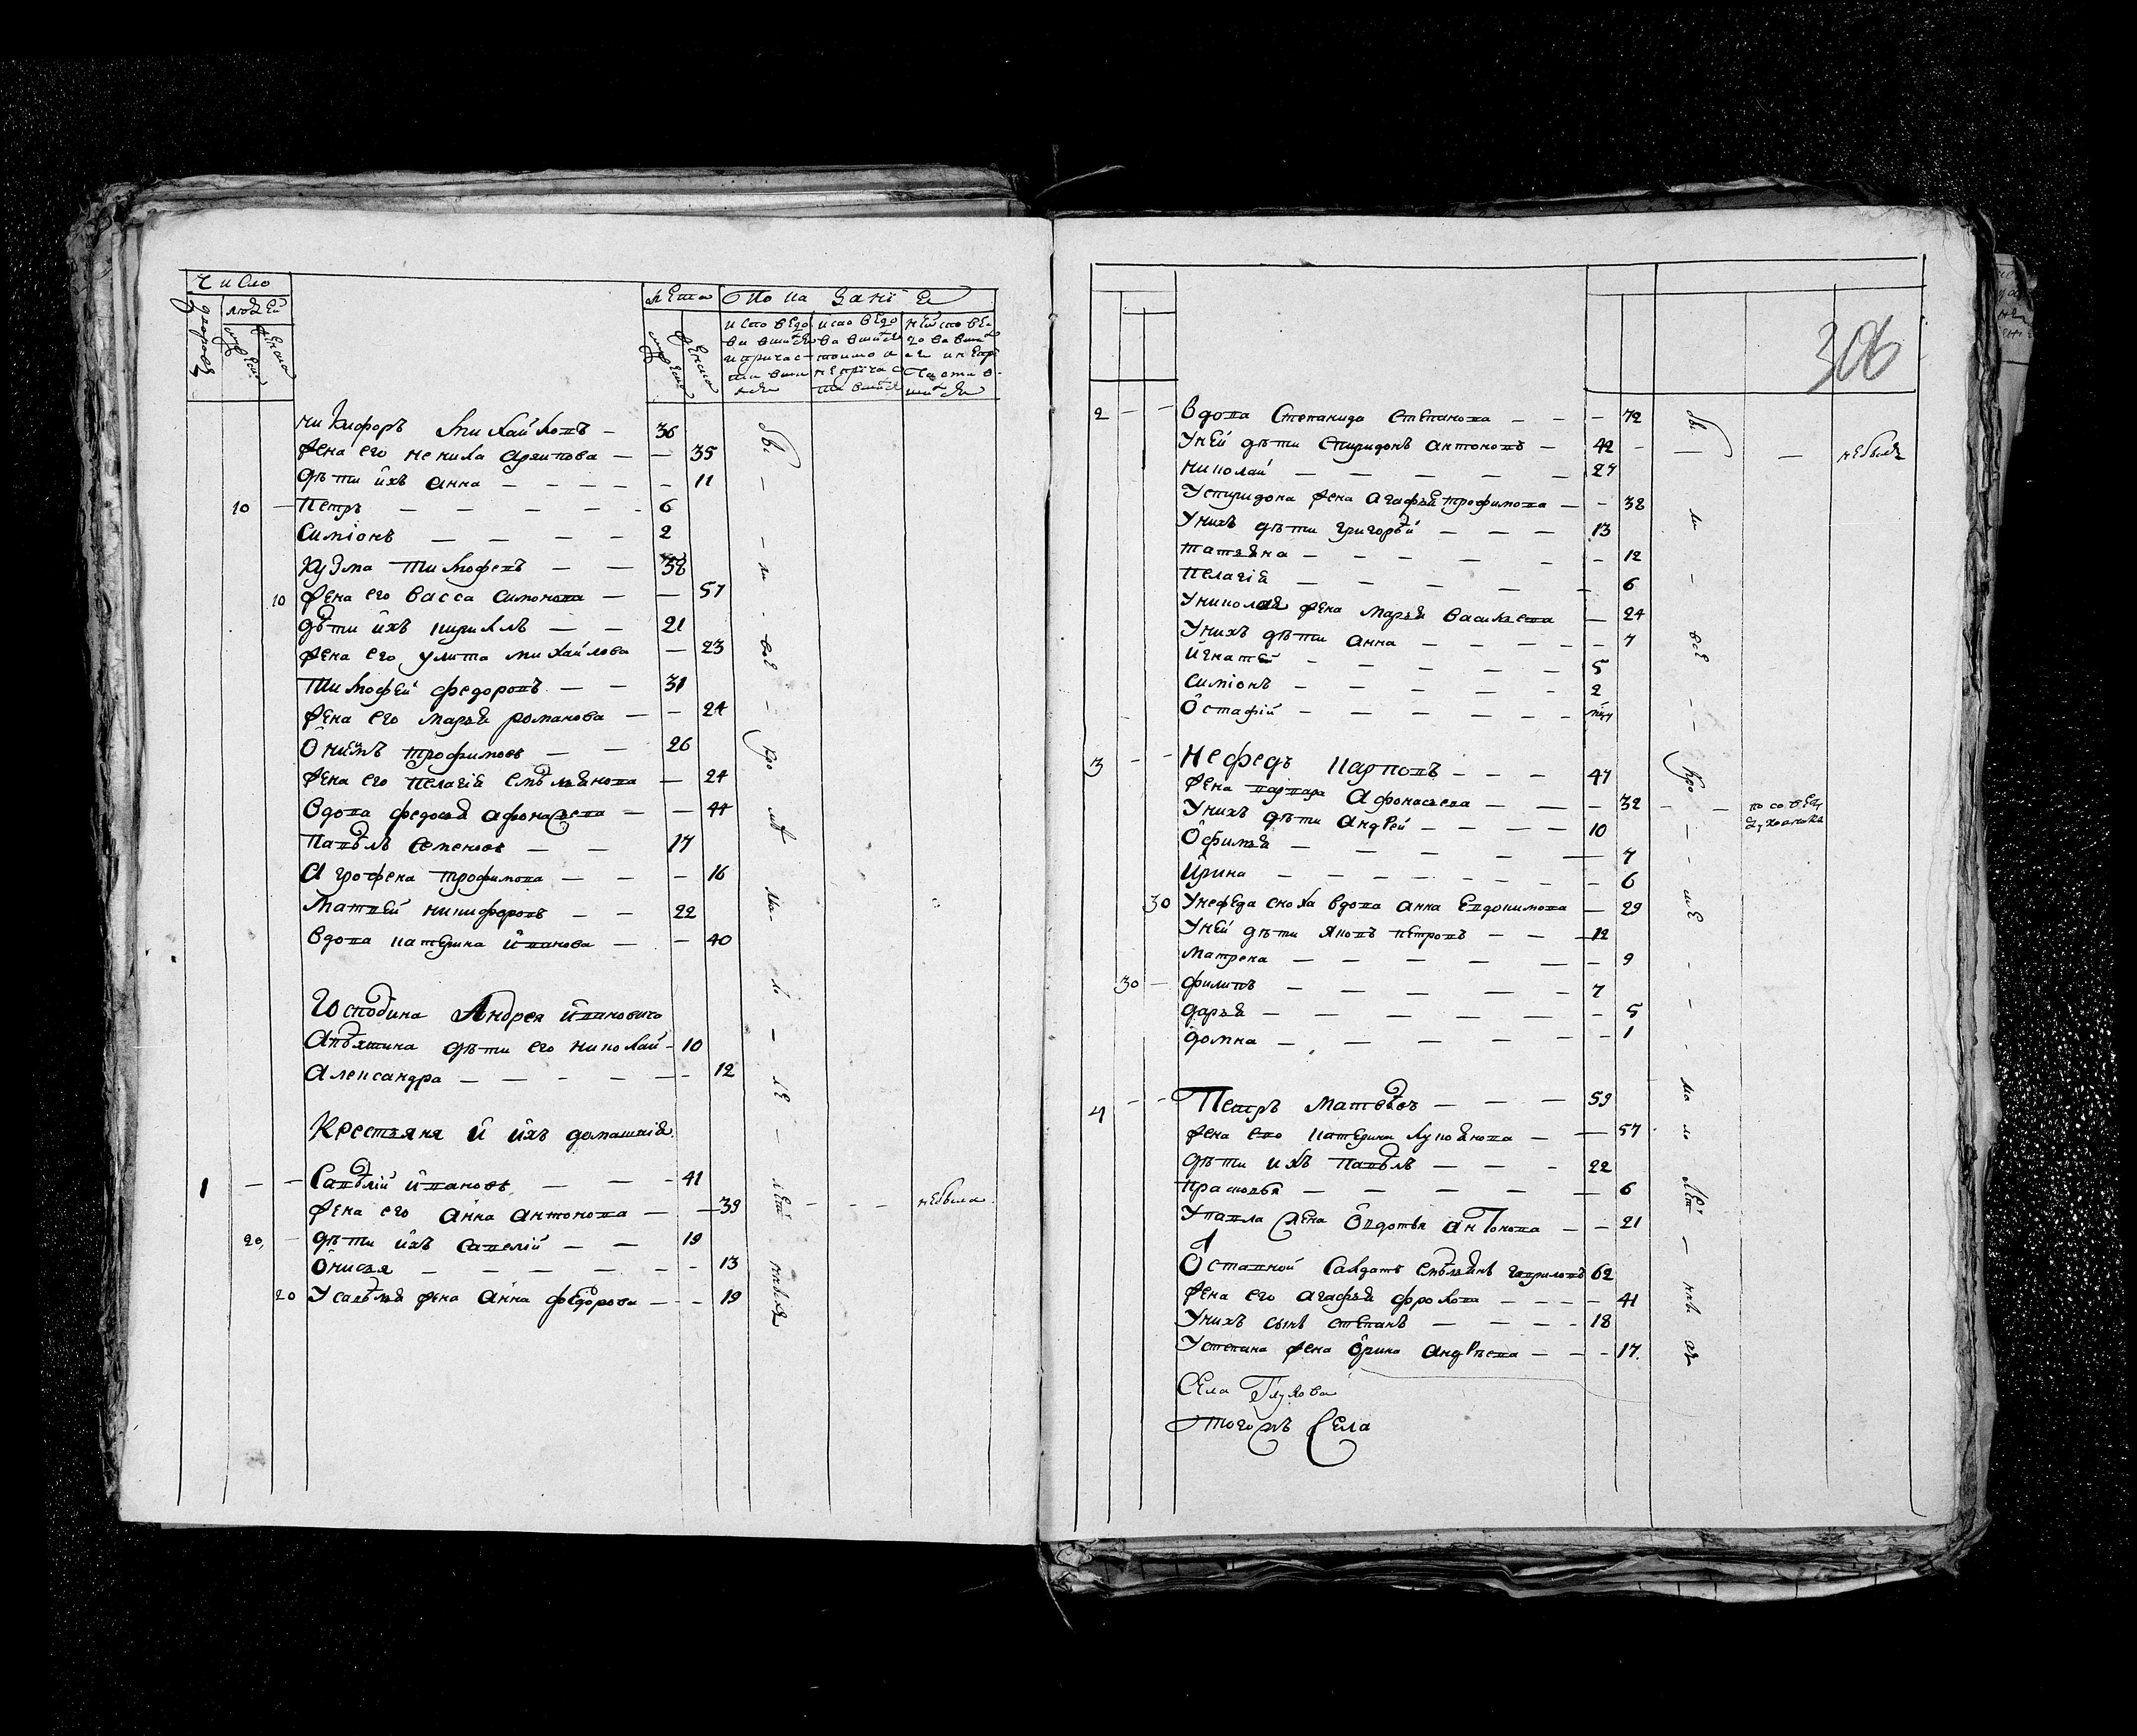 Число
дворовъ
людей
мужеска
женска
Лета
мужеска
женска
Показание
исповедо
вавшихся
и причас-
тившихся
исповедо
вавшихся
токмо а
не причас
тившихся
не испове-
довавши
ся и не при
частив-
шихся
никифоръ михайловъ — 36
жена его ненила архипова — — 35
дѣти ихъ анна — — — — 11
10 — петръ — — — — 6
симіонъ — — — — 2
кузма тимофевъ — — 58
10 жена его васса симонова — — 57
дѣти ихъ кирилъ — — 21
жена его улита михайлова — 23
тимофей федоровъ — — 31
жена его марья романова — — 24
Онисимъ трофимовъ — — 26
жена его пелагія емѣльянова — 24
вдова федосья афонасьева — — 44
павѣлъ семеновъ — — 17
агрофена трофимова — — — 16
матвей никифоровъ — — 22
вдова катерина иванова — — 40
Господина Андрея ивановича
дѣти его николай - 10
александра — — — — — 12
Крестьяня и ихъ домашнія
1 — — Савѣлій ивановъ — — — 41
жена его анна антонова — — 39 — — — небыла
20 — дѣти ихъ савелій — — 19
онисья — — — — — — 13
20 У савѣлья жена анна федорова — — 19
306
2 — — вдова степанида степанова — — — 72
У ней дѣти спиридонъ антоновъ — 42 — — — небылъ
николай — — — — — 27
У спиридона жена агафья трофимова — — 38
У нихъ дѣти григорьй — — — 13
татьяна — — — — — — 12
пелагія — — — — — 6
У николая жена марья васильева — 24
У нихъ дѣти анна — — — — — 7
игнатей — — — — — 5
симіонъ — — — — - 2
Остафій — — — — — —
3 — — нефедъ карповъ — — — 47
жена варвара афонасьева — — — 32 — — по совѣту
духовника
У нихъ дѣти андрей — — — — 10
Офимья — — — — — 7
ирина — — — — — — 6
30 У нефеда сноха вдова анна евдокимова — 29
У ней дѣти яковъ петровъ — — — 12
матрена — — — — — — 9
30 — филипъ — — — — — 7
дарья — — — — — — — 5
домна — — — — — — — 1
4 — — Петръ матвѣевъ — — — 59
жена его катерина лукоянова — — 57
дѣти ихъ павѣлъ — — - 22
прасковья — — — — — 6
У павла жена овдотья антонова — — 21
Отставной салдатъ емѣльянъ гавриловъ 62
жена его агафья фролова — — — — 41
У нихъ сынъ степанъ — — — — 18
У степана жена орина андрѣева — — — 17.
Села Глухова
тогожъ Села